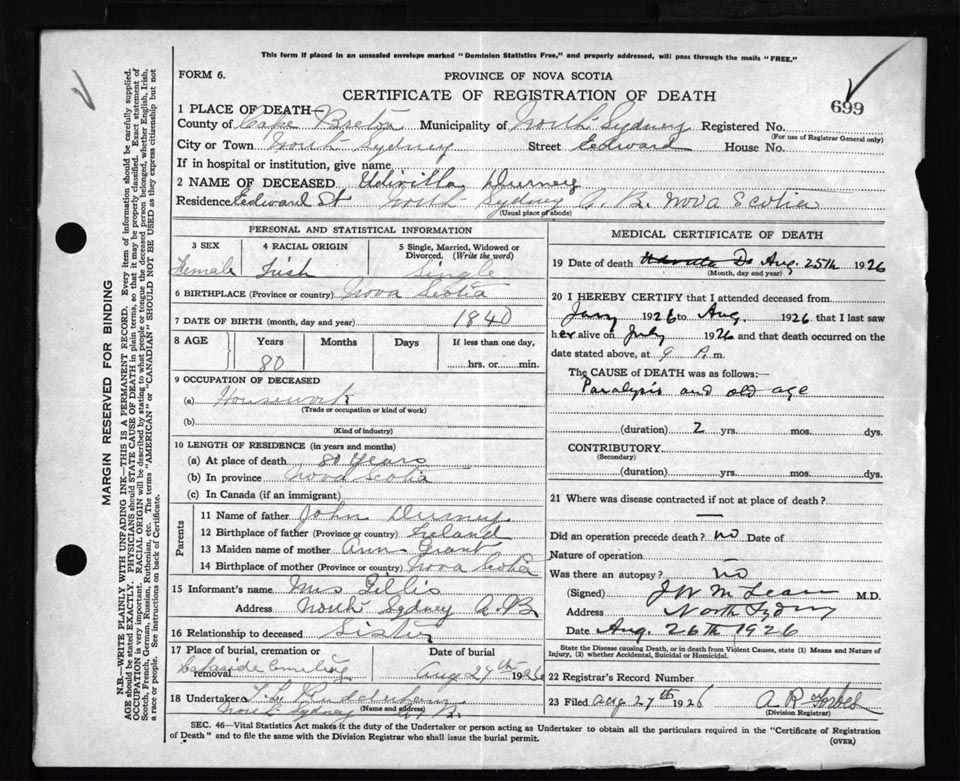 This form if placed in an unsealed envelope marked "Dominion Statistics Free," and properly addressed, will pass through the mails "FREE."
FORM 6.
PROVINCE OF NOVA SCOTIA
CERTIFICATE OF REGISTRATION OF DEATH
699
1 PLACE OF DEATH
County of Cape Breton Municipality of North Sydney Registered No.
(For use of Registrar General only)
City or Town North Sydney Street Edward House No.
If in hospital or institution, give name
2 NAME OF DECEASED Durney
Residence Edward St North Sydney C. B. Nova Scotia
(Usual place of abode)
PERSONAL AND STATISTICAL INFORMATION
3 SEX 4 RACIAL ORIGIN 5 Single, Married, Widowed or Divorced. (Write the word)
Female Irish Single
6 BIRTHPLACE (Province or country) Nova Scotia
7 DATE OF BIRTH (month, day and year) 1840
8 AGE Years Months Days If less than one day,
80 hrs. or min.
9 OCCUPATION OF DECEASED
(a) Housework
(Trade or occupation or kind of work)
(b)
(Kind of industry)
10 LENGTH OF RESIDENCE (in years and months)
(a) At place of death 80 Years
(b) In province Nova Scotia
(c) In Canada (if an immigrant)
Parents
11 Name of father John Durney
12 Birthplace of father (Province or country) Ireland
13 Maiden name of mother Ann Grant
14 Birthplace of mother (Province or country) Nova Scotia
15 Informant's name Mrs Gillis
Address North Sydney C. B.
16 Relationship to deceased Sister
17 Place of burial, cremation or removal Date of burial
Aug 27th 1926
18 Undertaker
(Name and address)
North Sydney
MEDICAL CERTIFICATE OF DEATH
19 Date of death Aug. 25th 1926
(Month, day and year)
20 I HEREBY CERTIFY that I attended deceased from
Jany 1926 to Aug. 1926 that I last saw
her alive on July 1926 and that death occurred on the
date stated above, at 9 P. m.
The CAUSE OF DEATH was as follows:—
Paralysis and old age
(duration) 2 yrs. mos. dys.
CONTRIBUTORY
(Secondary)
(duration) yrs. mos. dys.
21 Where was disease contracted if not at place of death?
—
Did an operation precede death? no Date of
Nature of operation
Was there an autopsy? no
(Signed) J W McLean M.D.
Address North Sydney
Date Aug. 26th 1926
State the Disease causing Death, or in death from Violent Causes, state (1) Means and Nature of Injury, (2) whether Accidental, Suicidal or Homicidal.
22 Registrar's Record Number
23 Filed Aug 27th 1926 A R Forbes
(Division Registrar)
SEC. 46—Vital Statistics Act makes it the duty of the Undertaker or person acting as Undertaker to obtain all the particulars required in the "Certificate of Registration
of Death" and to file the same with the Division Registrar who shall issue the burial permit.
(OVER)
MARGIN RESERVED FOR BINDING
N.B.—WRITE PLAINLY WITH UNFADING INK—THIS IS A PERMANENT RECORD. Every item of information should be carefully supplied.
AGE should be stated EXACTLY. PHYSICIANS should STATE CAUSE OF DEATH in plain terms, so that it may be properly classified. Exact statement of
OCCUPATION is very important. RACIAL ORIGIN will be described by stating to what people or tongue the deceased person belonged, whether English, Irish,
Scotch, French, German, Russian, Ruthenian, etc. The terms "AMERICAN" or "CANADIAN" SHOULD NOT BE USED as they express citizenship but not
a race or people. See instructions on back of Certificate.